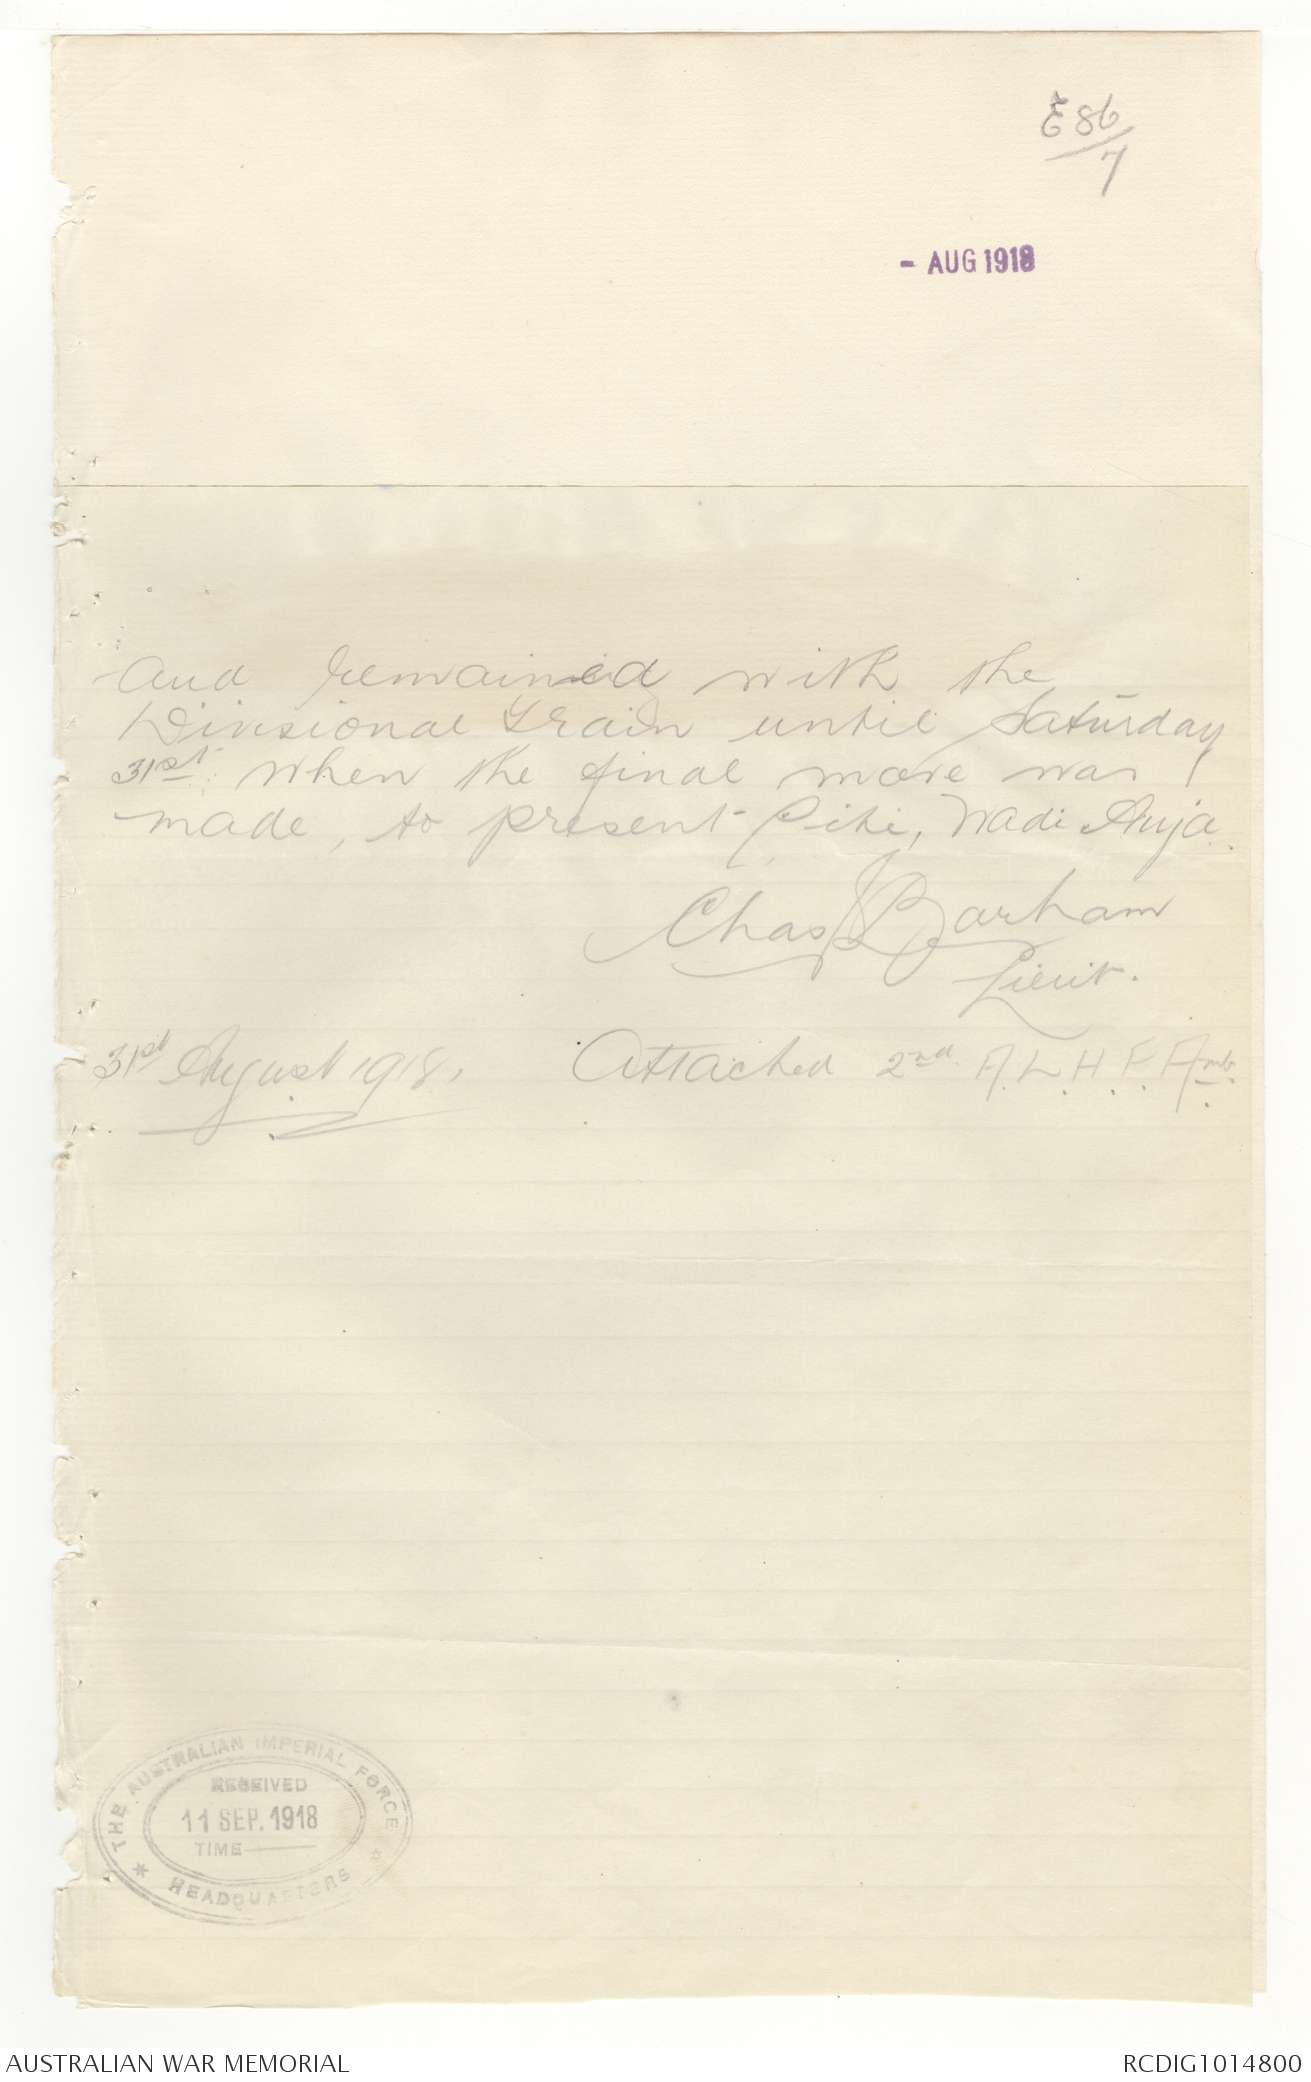 E 86/7
- AUG 1918
and remained with the
Divisional Train until Saturday
31st. when the final move was
made, to present site, Wadi Auja.
Chas J Barham
Lieut.
31st August 1918. Attached 2nd. A. L. H. F. Amb.
THE AUSTRALIAN IMPERIAL FORCE
RECEIVED
11 SEP. 1918
TIME
HEADQUARTERS
AUSTRALIAN WAR MEMORIAL
RCDIG1014800